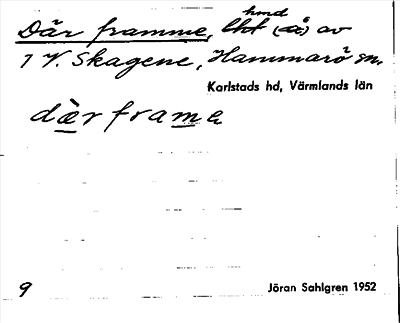 Där framme, lht (å) av
hmd
1 V. Skagene, Hammarö sn.
Karlstads hd, Värmlands län
dær frame
9
Jöran Sahlgren 1952